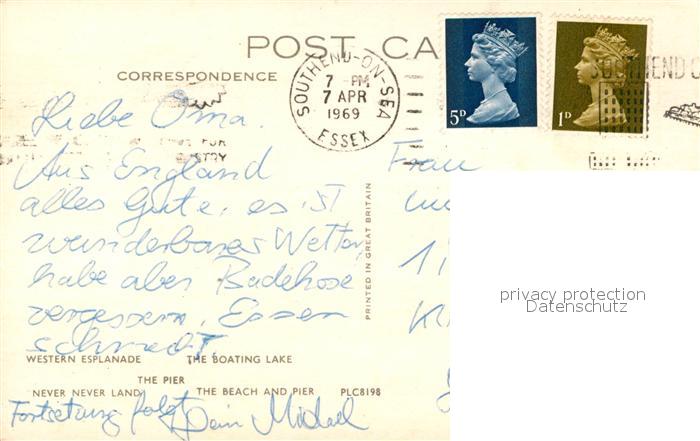 POST CA
CORRESPONDENCE
SOUTHEND-ON-SEA
7 - PM
7 APR
1969
ESSEX
5D
1D
SOUTHEND
FOR
Liebe Oma.
Aus England
alles Gute, es ist
wunderbares Wetter,
habe aber Badehose
vergessen. Essen
schmeckt.
Fortsetzung folgt Dein Michael
WESTERN ESPLANADE THE BOATING LAKE
THE PIER
NEVER NEVER LAND THE BEACH AND PIER PLC8198
PRINTED IN GREAT BRITAIN
Frau
privacy protection
Datenschutz